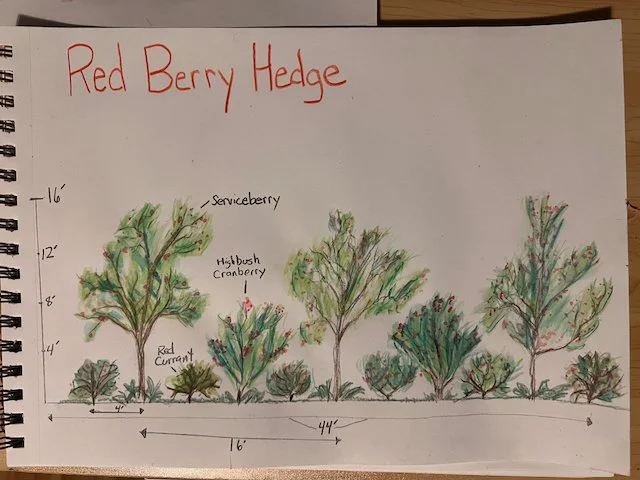 Red Berry Hedge
16'
Serviceberry
12'
Highbush
Cranberry
8'
Red
Currant
4'
4'
44'
16'